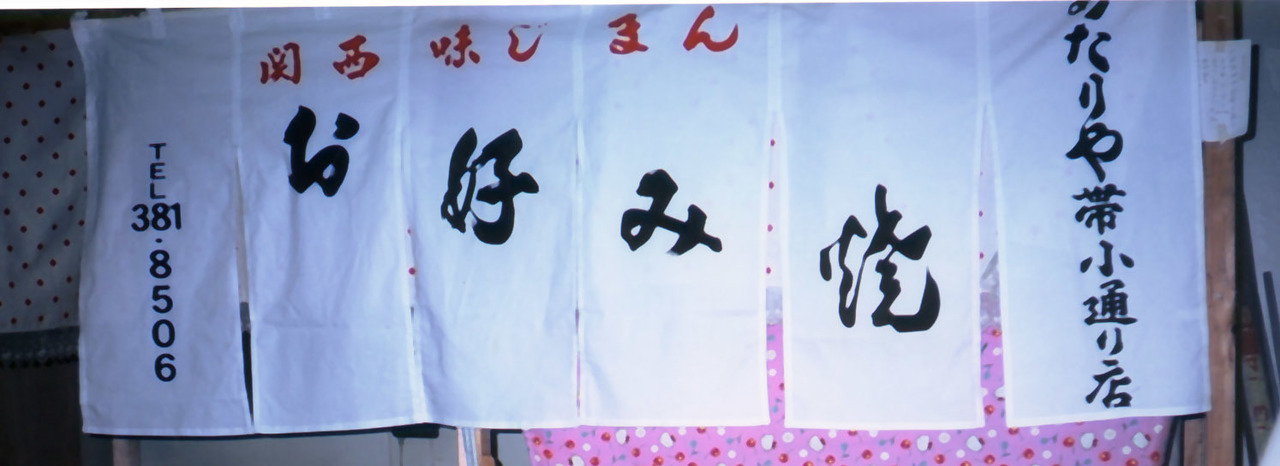 関西味じまん
お好み焼
みたりや帯小通り店
TEL
381・8506